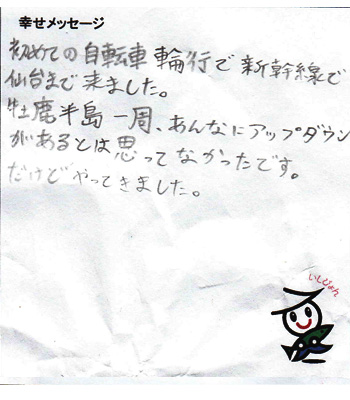 幸せメッセージ
初めての自転車輪行で新幹線で
仙台まで来ました。
牡鹿半島一周、あんなにアップダウン
があるとは思ってなかったです。
だけどやってきました。
いしぴょん